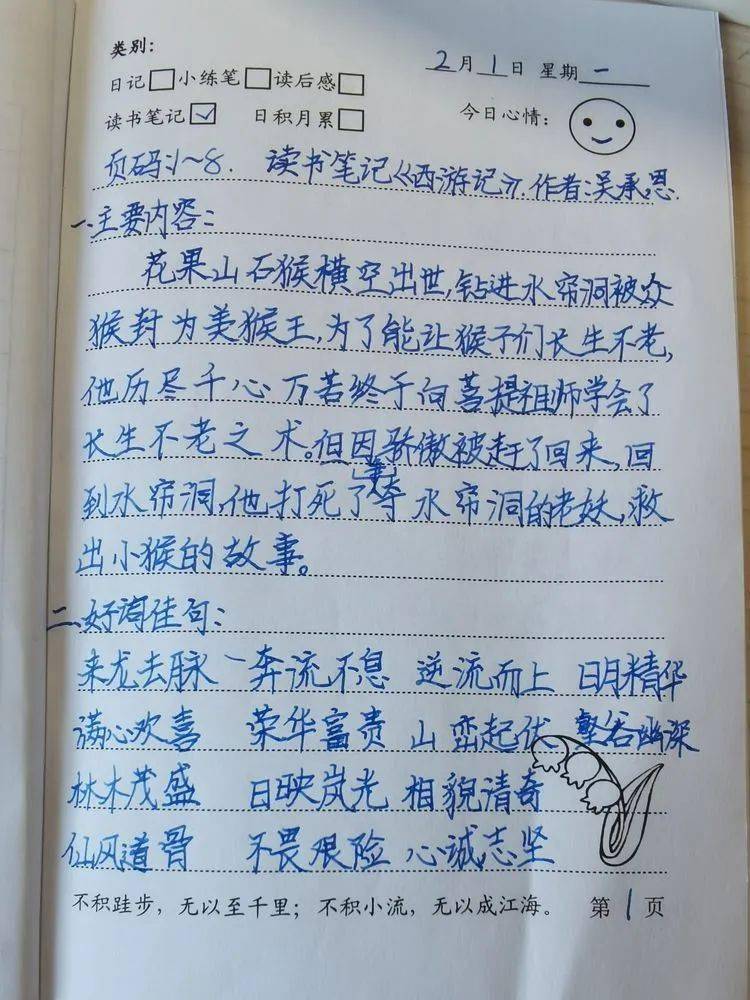 类别：
2月1日 星期一
日记□小练笔□读后感□
读书笔记☑ 日积月累□ 今日心情：
页码：1～8. 读书笔记《西游记》. 作者：吴承恩.
一、主要内容：
花果山石猴横空出世，钻进水帘洞被众
猴封为美猴王，为了能让猴子们长生不老，
他历尽千心万苦终于向菩提祖师学会了
长生不老之术。但因骄傲被赶了回来，回
到水帘洞，他打死了夺水帘洞的老妖，救
出小猴的故事。
二、好词佳句：
来龙去脉 奔流不息 逆流而上 日月精华
满心欢喜 荣华富贵 山峦起伏 壑谷幽深
林木茂盛 日映岚光 相貌清奇
仙风道骨 不畏艰险 心诚志坚
不积跬步，无以至千里；不积小流，无以成江海。 第1页